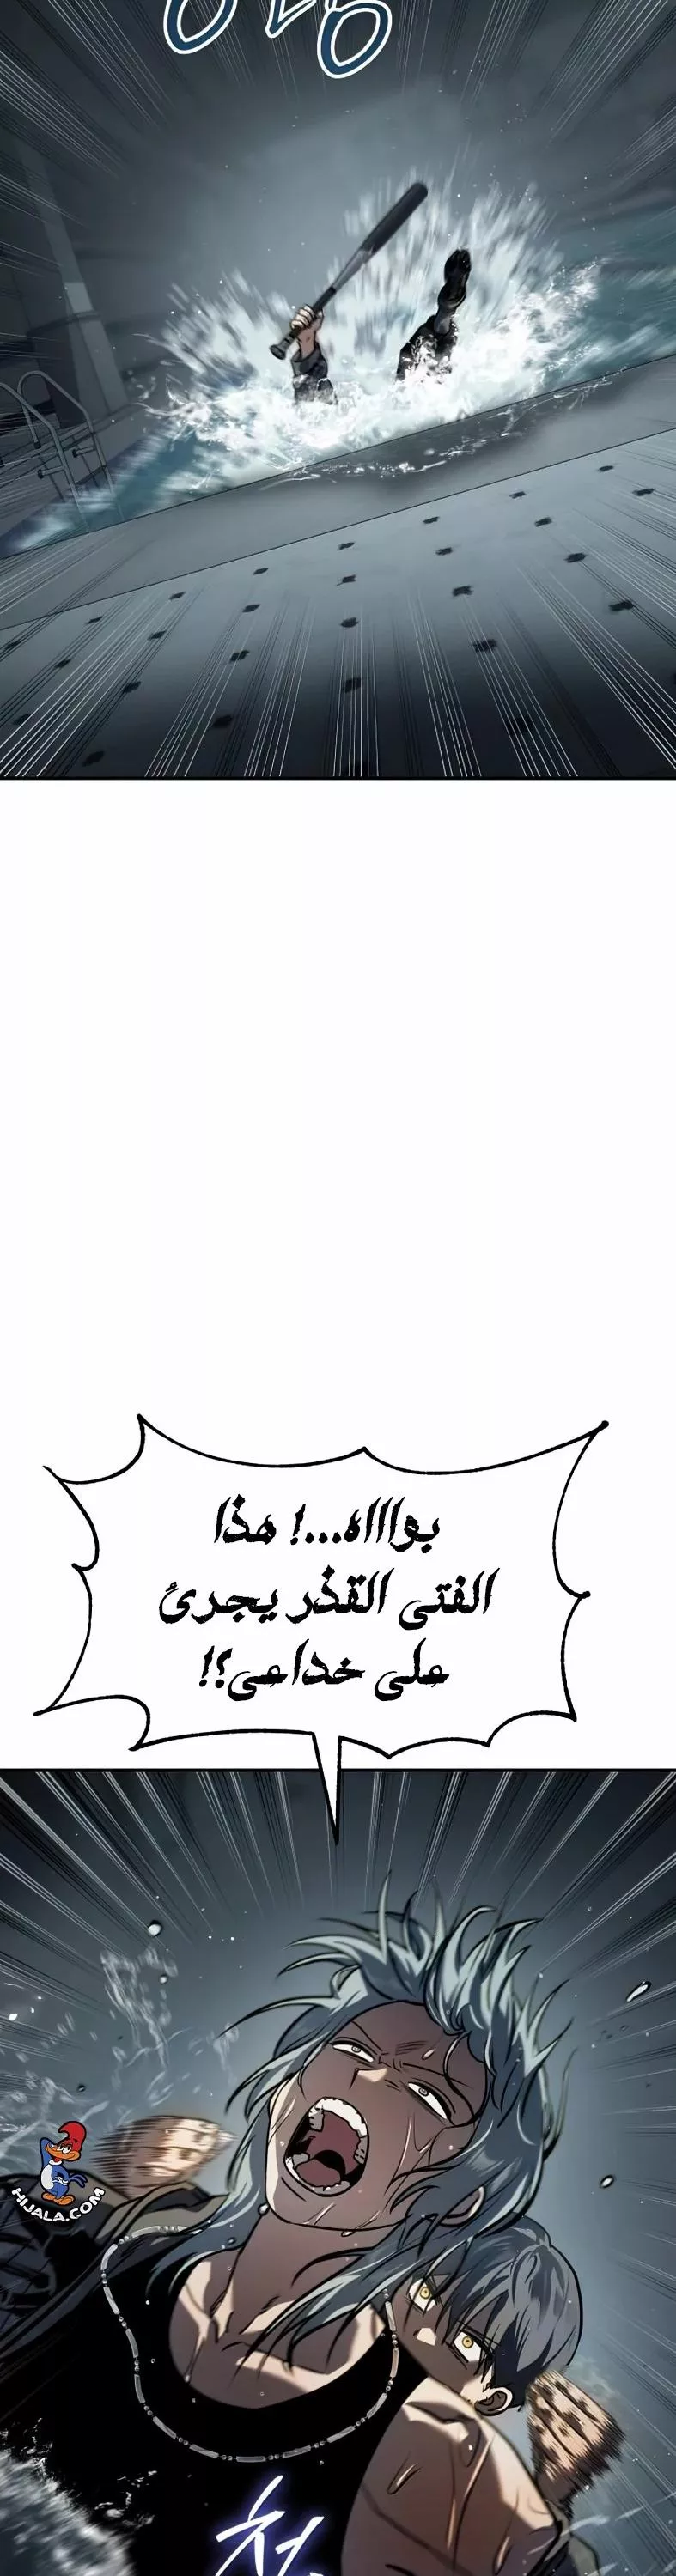 بوااااه...! هذا
الفتى القذر يجرئ
على خداعي؟!
HIJALA.COM
첨